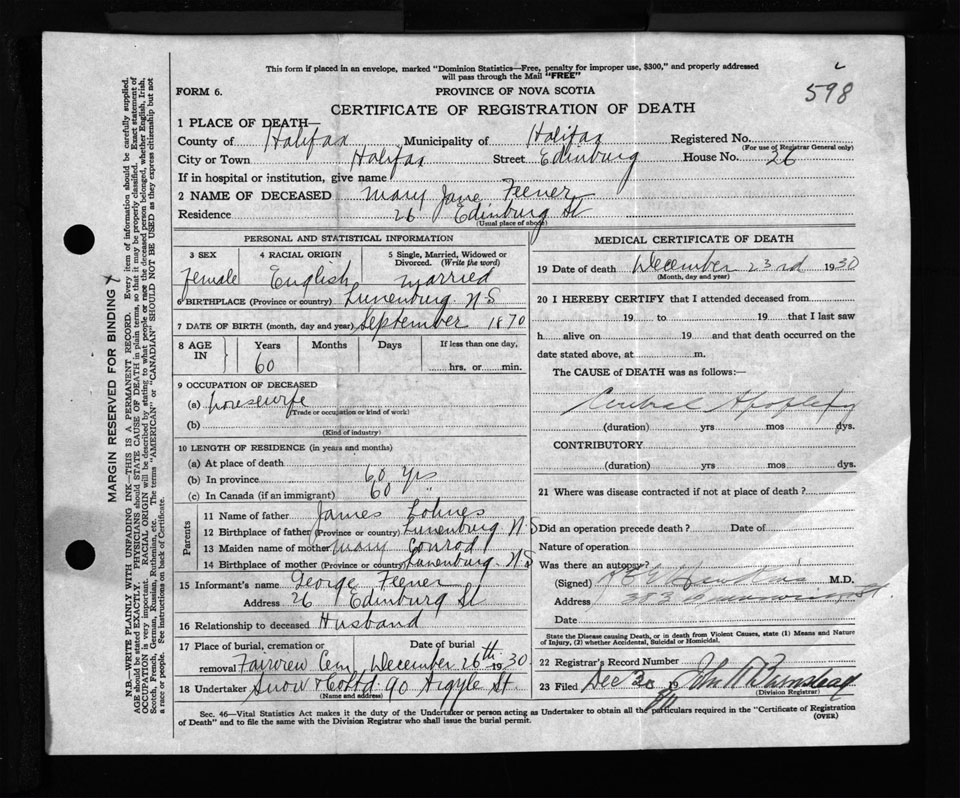 This form if placed in an envelope, marked "Dominion Statistics—Free, penalty for improper use, $300," and properly addressed
will pass through the Mail "FREE"
598
FORM 6.
PROVINCE OF NOVA SCOTIA
CERTIFICATE OF REGISTRATION OF DEATH
1 PLACE OF DEATH—
County of Halifax Municipality of Halifax Registered No.
(For use of Registrar General only)
City or Town Halifax Street Edinburg House No. 26
If in hospital or institution, give name
2 NAME OF DECEASED Mary Jane Feener
Residence 26 Edinburg St
(Usual place of abode)
PERSONAL AND STATISTICAL INFORMATION
3 SEX 4 RACIAL ORIGIN 5 Single, Married, Widowed or
Divorced. (Write the word)
Female English Married
6 BIRTHPLACE (Province or country) Lunenburg N S
7 DATE OF BIRTH (month, day and year) September 1870
8 AGE IN Years Months Days If less than one day,
60 hrs. or min.
9 OCCUPATION OF DECEASED
(a) housewife
(Trade or occupation or kind of work)
(b)
(Kind of industry)
10 LENGTH OF RESIDENCE (in years and months)
(a) At place of death
(b) In province 60 Yrs
(c) In Canada (if an immigrant) 60 "
Parents
11 Name of father James Lohnes
12 Birthplace of father (Province or country) Lunenburg N.S
13 Maiden name of mother Mary Conrod
14 Birthplace of mother (Province or country) Lunenburg N S
15 Informant's name George Feener
Address 26 Edinburg St
16 Relationship to deceased Husband
17 Place of burial, cremation or Date of burial
removal Fairview Cem December 26th 1930
18 Undertaker Snow & Co Ltd 90 Argyle St
(Name and address)
MEDICAL CERTIFICATE OF DEATH
19 Date of death December 23rd 1930
(Month, day and year)
20 I HEREBY CERTIFY that I attended deceased from
19 to 19 that I last saw
h alive on 19 and that death occurred on the
date stated above, at m.
The CAUSE of DEATH was as follows:—
Apoplexy
(duration) yrs mos dys.
CONTRIBUTORY
(duration) yrs mos dys.
21 Where was disease contracted if not at place of death?
Did an operation precede death? Date of
Nature of operation
Was there an autopsy?
(Signed) M.D.
Address 383
Date
State the Disease causing Death, or in death from Violent Causes, state (1) Means and Nature
of Injury, (2) whether Accidental, Suicidal or Homicidal.
22 Registrar's Record Number
23 Filed Dec 19 John A Barnstead
(Division Registrar)
Sec. 46—Vital Statistics Act makes it the duty of the Undertaker or person acting as Undertaker to obtain all the particulars required in the "Certificate of Registration
of Death" and to file the same with the Division Registrar who shall issue the burial permit.
(OVER)
MARGIN RESERVED FOR BINDING
N.B.—WRITE PLAINLY WITH UNFADING INK—THIS IS A PERMANENT RECORD. Every item of information should be carefully supplied.
AGE should be stated EXACTLY. PHYSICIANS should STATE CAUSE OF DEATH in plain terms, so that it may be properly classified. Exact statement of
OCCUPATION is very important. RACIAL ORIGIN will be described by stating to what people or race the deceased person belonged, whether English, Irish,
Scotch, French, German, Russian, Ruthenian, etc. The terms "AMERICAN" or "CANADIAN" SHOULD NOT BE USED as they express citizenship but not
a race or people. See instructions on back of Certificate.